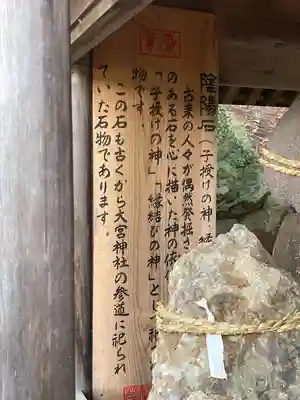 陰陽石(子授けの神・
古来の人々が偶然発掘さ
のある石を心に描いた神の依
「子授けの神」「縁結びの神」と
物です。
この石も古くから大宮神社の参道に祀られ
ていた石物であります。